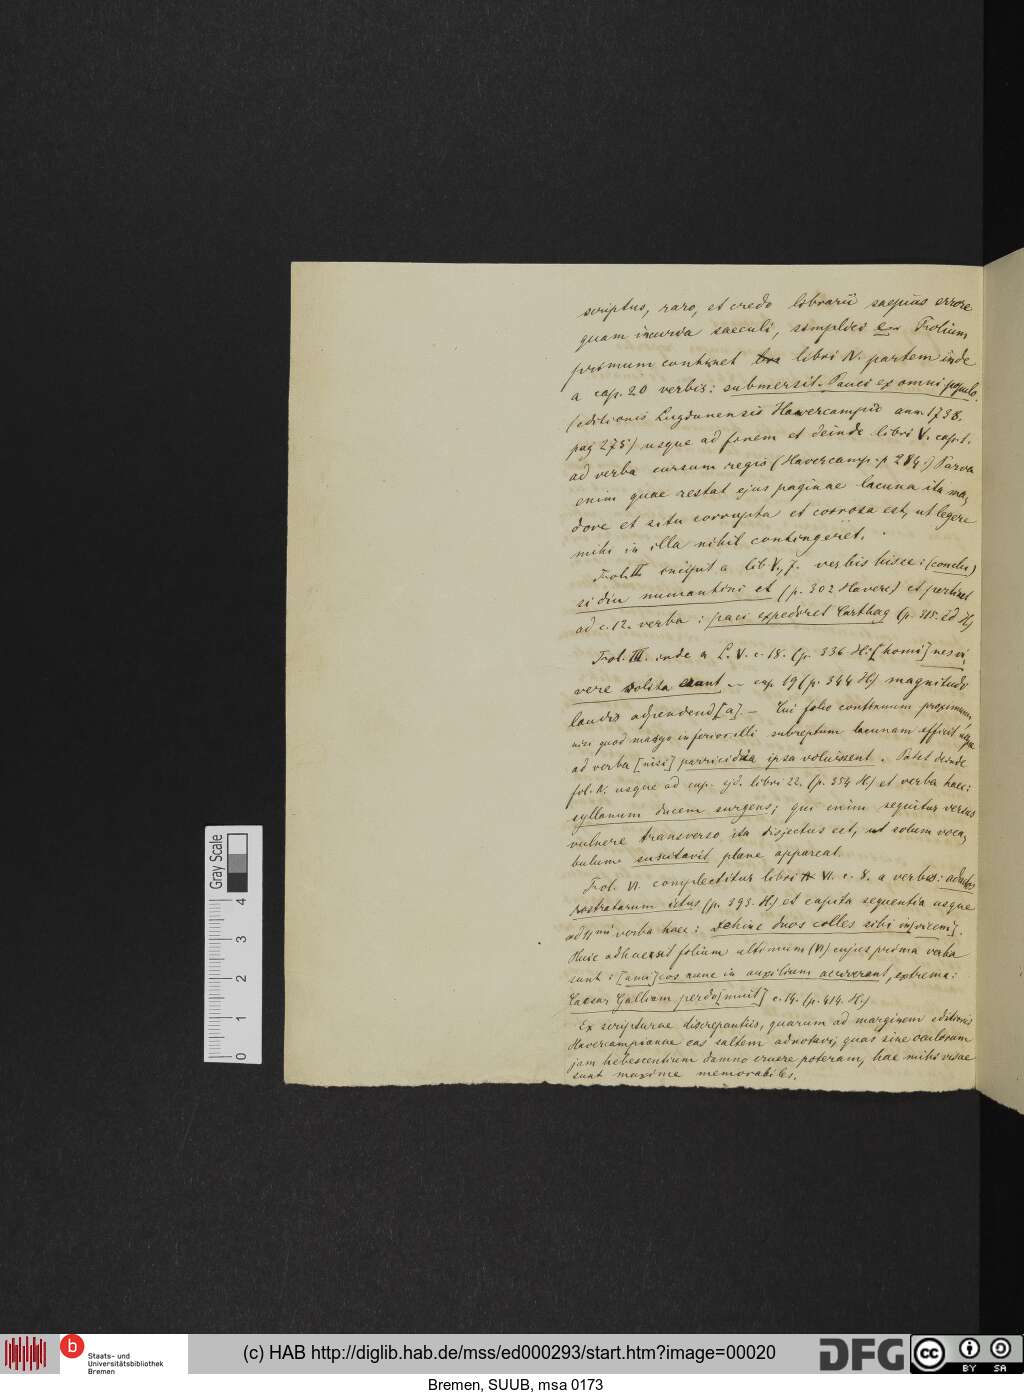 scriptus, raro, et credo librarii saepius errore
quam incuria saeculi, simplici e. Folium
primum continet libri IV. partem inde
a cap. 20 verbis: submersit. Pauci ex omni populo.
(editionis Lugdunensis Havercampii ann. 1738.
pag 275) usque ad finem et deinde libri V. cap. 1.
ad verba cursum regis (Havercamp. p 284.) Parva
enim quae restat ejus paginae lacuna ita ma,
dore et situ corrupta et corrosa est, ut legere
mihi in illa nihil contingeret.
Fol. II incipit a lib. V, 7. verbis hisce: (conclu)
si diu numantini et (p. 302 Haverc) et pertinet
ad c. 12. verba: paci expediret Carthag (p. 315. Ed H)
Fol. III. inde a L. V. c. 18. (p. 336 H: [homi]nes vi,
vere solita erant — cap. 19 (p. 344 H) magnitudo
laudis adpendend[a] — Cui folio continuum proximum
nisi quod margo inferior illi subreptum lacunam efficit usque
ad verba [nisi] parricidia ipsa voluissent. Patet deinde
fol. V. usque ad cap. ejd. libri 22. (p. 354 H) et verba haec:
syllanum ducem surgens; qui enim sequitur versus
vulnere transverso ita disjectus est, ut solum voca,
bulum suscitavit plane appareat.
Fol. VI. complectitur libri VI. c. 8. a verbis: adactis
rostratarum ictus (p. 393. H) et capita sequentia usque
ad 11 mi verba haec: Dehinc duos colles sibi in[vicem].
Huic adhaesit folium ultimum (VI) cujus prima verba
sunt: [ami]cos nunc in auxilium acciverant, extrema:
Caesar Galliam perdo[muit] c. 14. (p. 414. H.)
Ex scripturae discrepantiis, quarum ad marginem editionis
Havercampianae eas saltem adnotavi, quas sine oculorum
jam hebescentium damno eruere poteram, hae mihi visae
sunt maxime memorabiles.
Gray Scale
4
3
2
1
0
b
Staats- und
Universitätsbibliothek
Bremen
(c) HAB http://diglib.hab.de/mss/ed000293/start.htm?image=00020
DFG
cc
BY SA
Bremen, SUUB, msa 0173